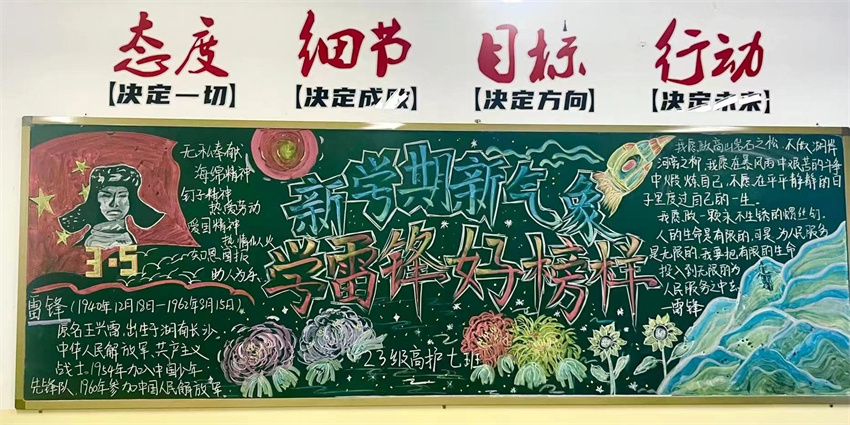 态度 细节 目标 行动
【决定一切】 【决定成败】 【决定方向】 【决定未来】
无私奉献
海绵精神
钉子精神
热爱劳动
爱国精神
热情似火
知恩图报
助人为乐
3·5
雷锋(1940年12月18日—1962年8月15日)
原名王兴雷,出生于湖南长沙
中华人民解放军,共产主义
战士,1954年加入中国少年
先锋队,1960年参加中国人民解放军
新学期新气象
学雷锋好榜样
23级高护七班
我愿做高山岩石之松,不做湖岸
河旁之柳,我愿在暴风雨中艰苦的斗争
中锻炼自己,不愿在平平静静的日
子里度过自己的一生。
我愿做一颗永不生锈的螺丝钉。
人的生命是有限的,可是,为人民服务
是无限的,我要把有限的生命
投入到无限的为
人民服务之中去
雷锋